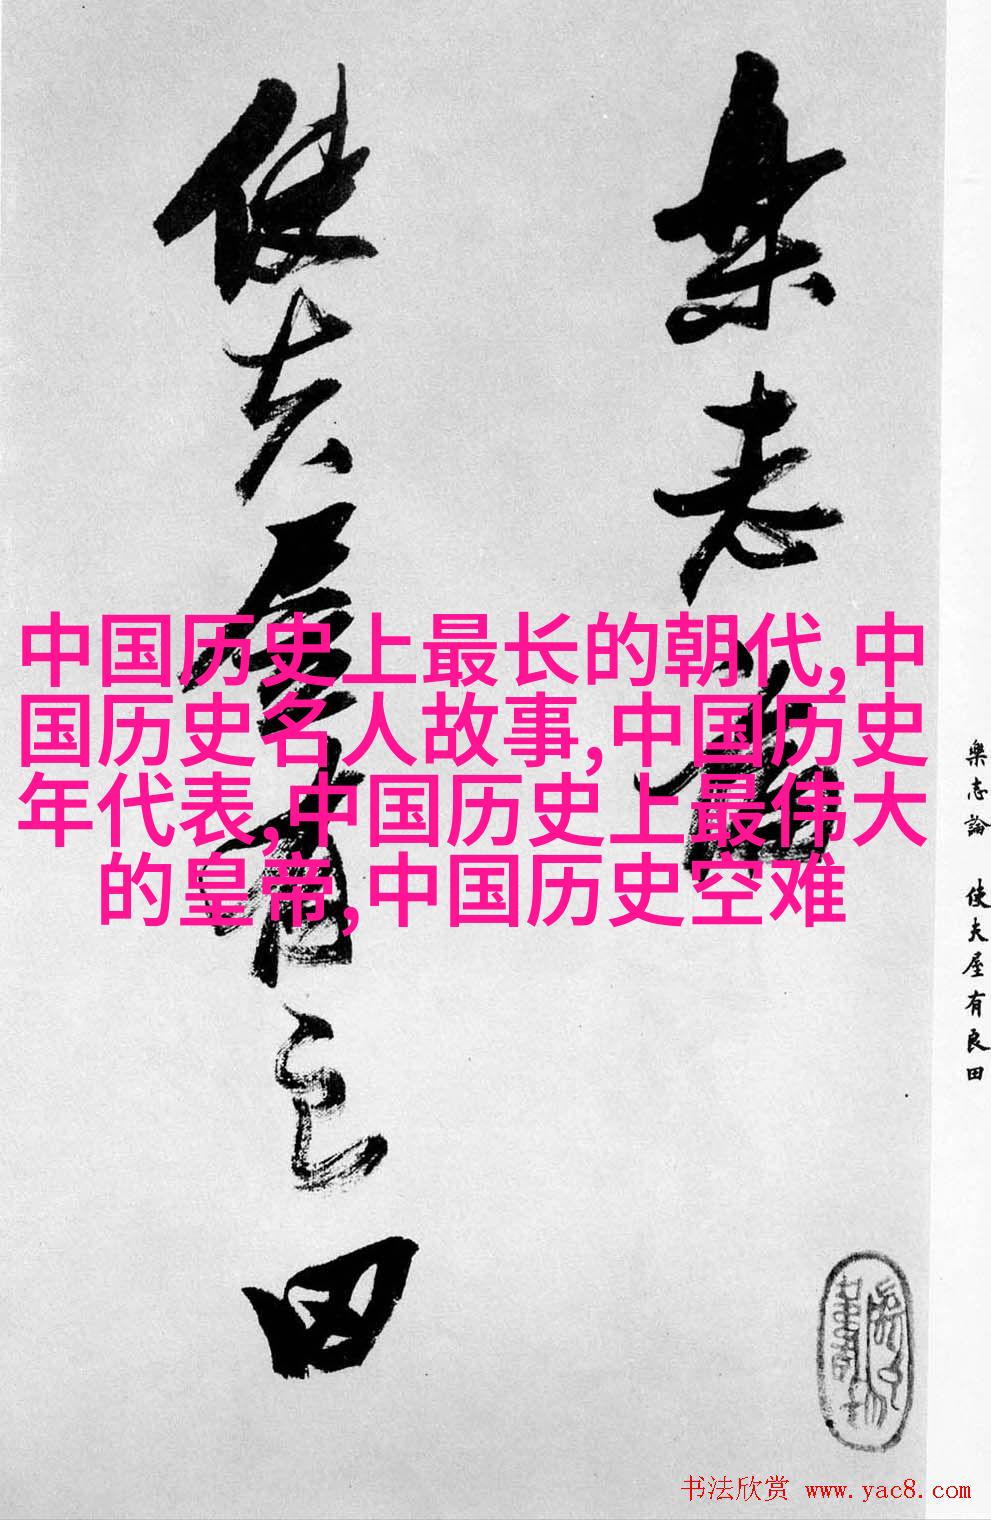 樂志論
使夫屋有良田
中国历史上最长的朝代,中
国历史名人故事,中国历史
年代表,中国历史上最伟大
的皇帝,中国历史空难
樂志論 使夫屋有良田
书法欣赏 www.yac8.com